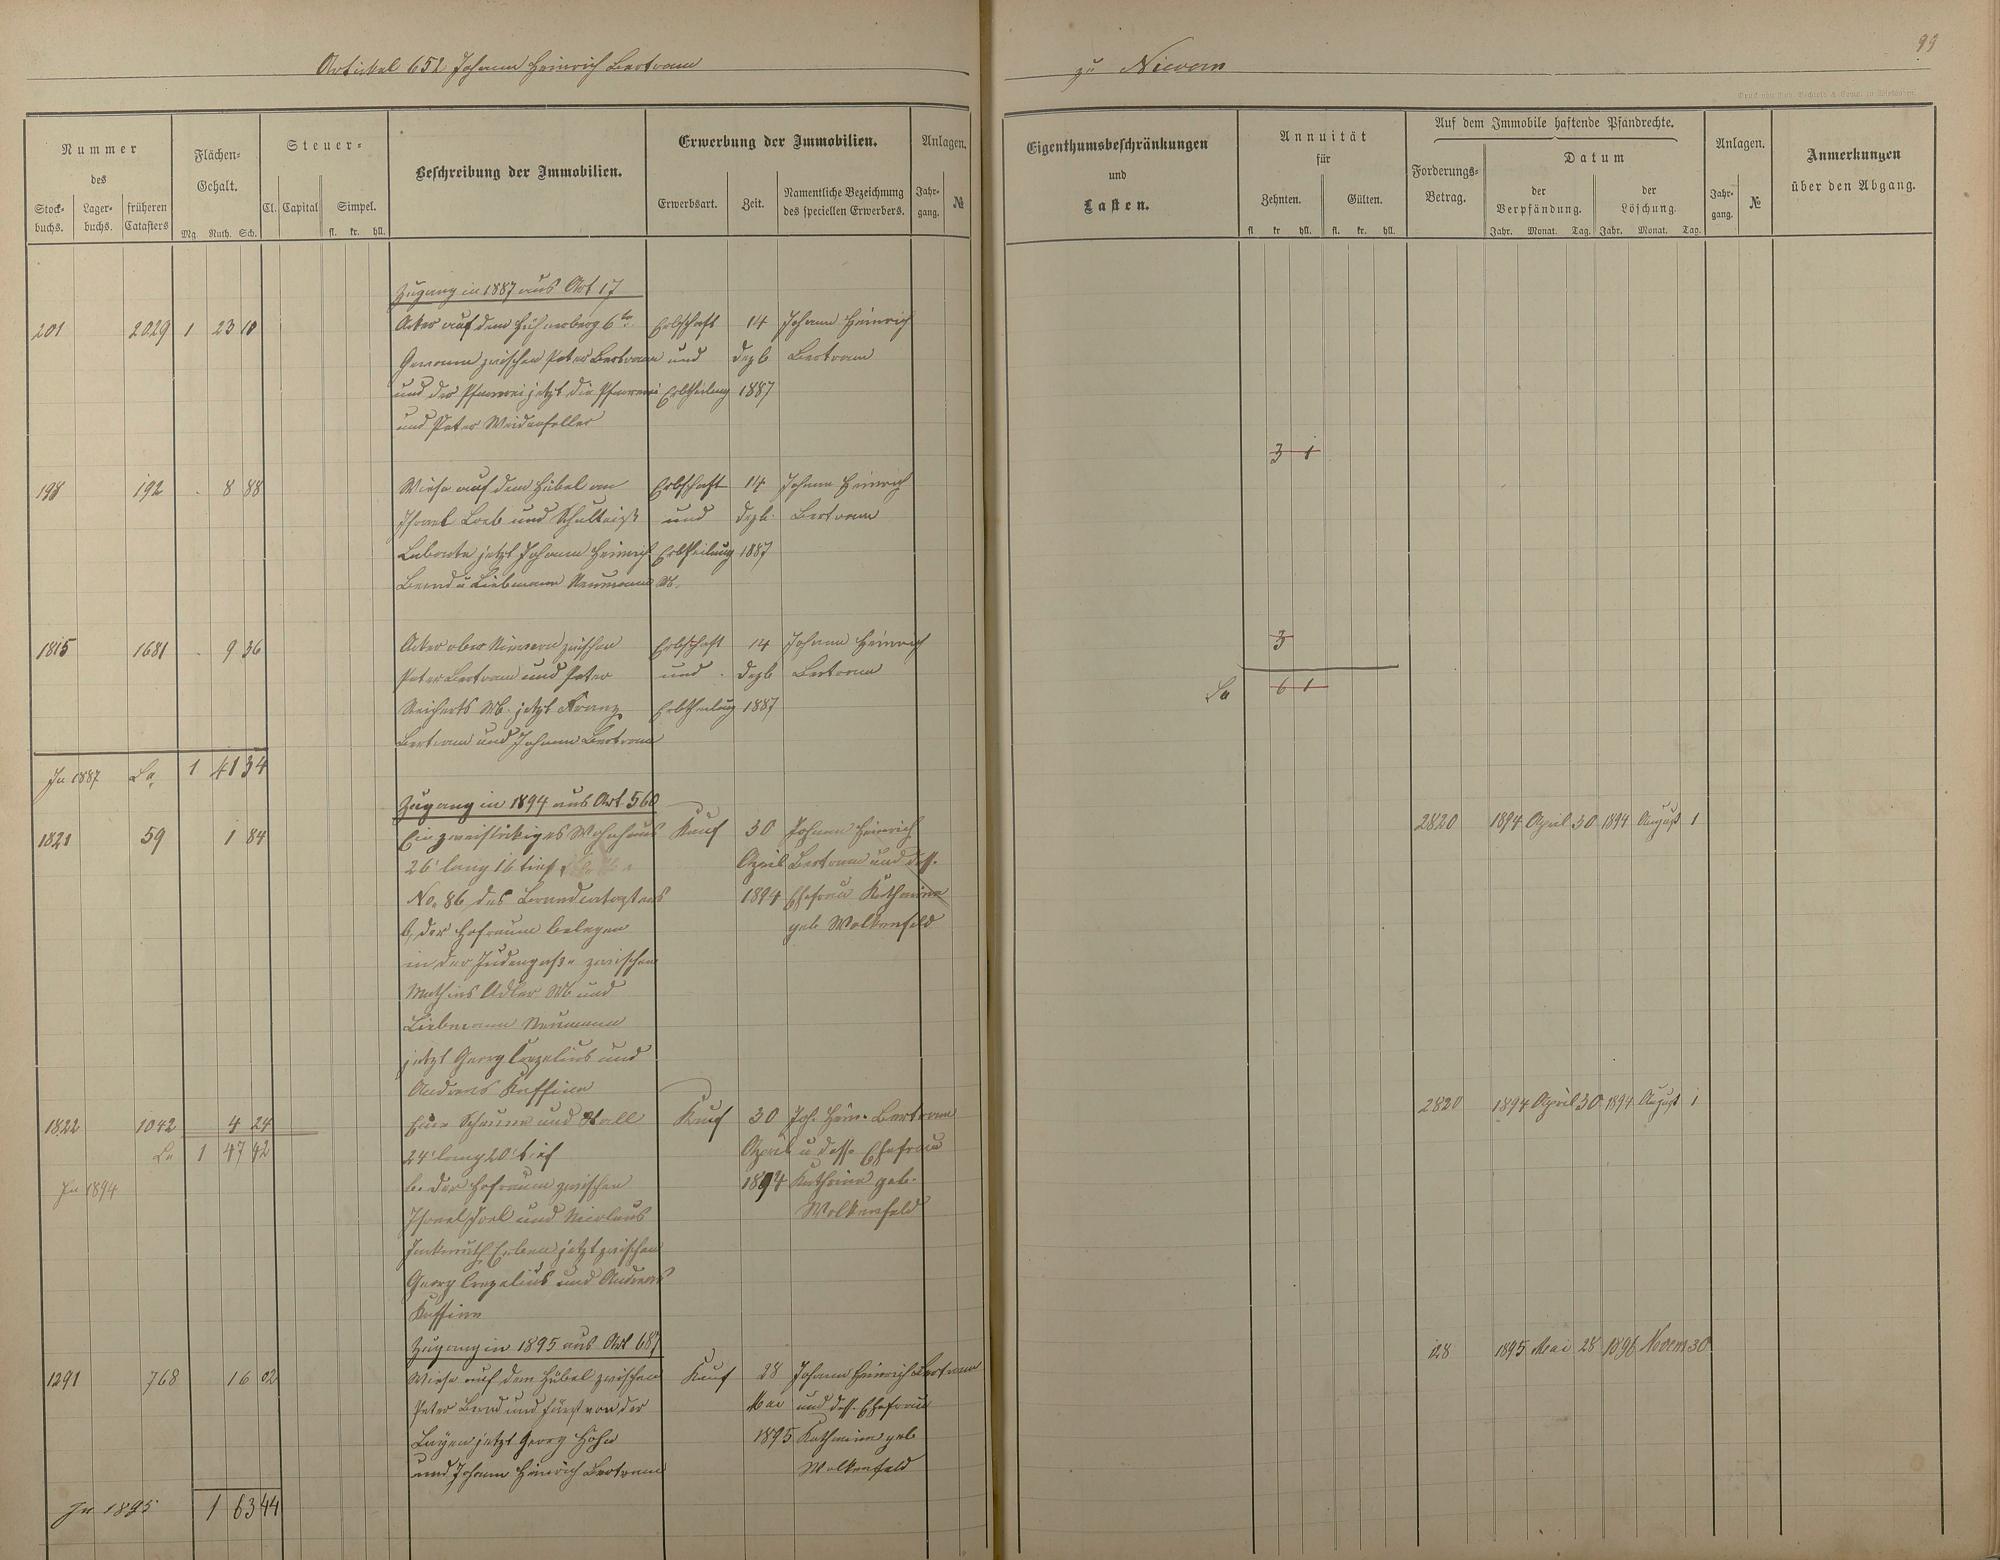 Artikel 652 Johann Heinrich Bertram
zu Nievern
93
Nummer
des
Stock-
buchs.
Lager-
buchs.
früheren
Catasters
Flächen-
Gehalt.
Mg. Ruth. Sch.
Steuer-
Cl. Capital Simpel.
fl. kr. hll.
Beschreibung der Immobilien.
Erwerbung der Immobilien.
Erwerbsart. Zeit.
Namentliche Bezeichnung
des speciellen Erwerbers.
Anlagen.
Jahr-
gang.
№
Eigenthumsbeschränkungen
und
Lasten.
Annuität
für
Zehnten. Gülten.
fl. kr. hll. fl. kr. hll.
Auf dem Immobile haftende Pfandrechte.
Forderungs-
Betrag.
Datum
der
Verpfändung.
der
Löschung.
Jahr. Monat. Tag. Jahr. Monat. Tag.
Anlagen.
Jahr-
gang.
№
Anmerkungen
über den Abgang.
Zugang in 1887 aus Art 17
201 2029 1 23 10 Acker auf dem Hühnerberg 6te Erbschaft 14 Johann Heinrich
Gewann zwischen Peter Bertram und Dezb Bertram
und der Pfarrei jetzt die Pfarrei Erbtheilung 1887
und Peter Weidenfeller
3 1
198 192 . 8 88 Wiese auf dem Hübel an Erbschaft 14 Johann Heinrich
Israel Loeb und Schultheiß und Dezb. Bertram
jetzt Johann Heinrich Erbtheilung 1887
Bernd u Liebmann Neumann W.
1815 1681 . 9 36 Acker ober Nievern zwischen Erbschaft 14 Johann Heinrich
3
Peter Bertram und Peter und Dezb Bertram
Sa 6 1
Reicherts Wb. jetzt Franz Erbtheilung 1887
Bertram und Johann Bertram
In 1887 Sa 1 41 34
Zugang in 1894 aus Art. 560
1821 59 1 84 Ein zweistöckiges Wohnhaus Kauf 30 Johann Heinrich
2820 1894 April 30 1894 August 1
26' lang 16 tief April Bertram und dess.
No. 86 des Brandcatasters 1894 Ehefrau Katharina
b, der Hofraum belegen geb Wolkenfeld
in der Judengaße zwischen
Mathias Adler Wb und
Liebmann Neumann
jetzt Georg Crezelius und
Andreas Kaffine
1822 1042 4 24 Eine Scheune und Stall Kauf 30 Joh. Hein. Bertram
2820 1894 April 30 1894 August 1
Sa 1 47 42 24' lang 20' tief April u dess. Ehefrau
In 1894
b. der Hofraum zwischen 1894 Katharina geb.
Israel Joel und Nicolaus Wolkenfeld
Erben jetzt zwischen
Georg Crezelius und Andreas
Kaffine
Zugang in 1895 aus Art 687
1291 768 16 02 Wiese auf dem Hübel zwischen Kauf 28 Johann Heinrich Bertram
28 1895 Mai 28 1896 Novem 30
Peter Bernd und Fürst von der Mai und dess. Ehefrau
Leyen jetzt Georg Hohn 1895 Katharina geb
und Johann Heinrich Bertram Wolkenfeld
In 1895 1 63 44